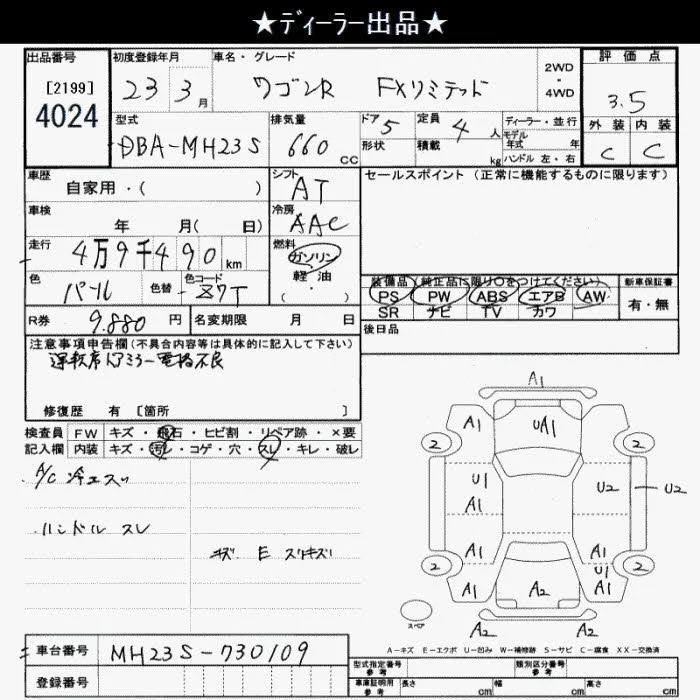 ★ディーラー出品★
出品番号 初度登録年月 車名・グレード 評価点
[2199] 23 3月 ワゴンR FXリミテッド 2WD・4WD 3.5
4024
型式 排気量 ドア 定員 ディーラー・並行 外装 内装
DBA-MH23S 660CC 5 4人 モデル年式 年 C C
形状 積載 kg ハンドル 左・右
車歴 シフト セールスポイント (正常に機能するものに限ります)
自家用・( ) AT
車検 冷房
年 月( 日) AAC
走行 燃料
4万9千490km ガソリン
軽油
( ・ )
色 色替 色コード
パール Z7T
装備品 (純正品に限り○をつけてください) 新車保証書
PS PW ABS エアB AW 有・無
SR ナビ TV カワ
R券 9.880円 名変期限 月 日 後日品
注意事項申告欄 (不具合内容等は具体的に記入して下さい)
運転席ドアミラー電格不良
修復歴 有 [箇所 ]
検査員 FW キズ・飛石・ヒビ割・リペア跡・×要
記入欄 内装 キズ・汚レ・コゲ・穴・スレ・キレ・破レ
A/C 冷エスい
ハンドル スレ
キズ E スリキズ
A1
A1 UA1 A1
2 2
U1 U2 U2
A1
A1 A1
U1
2 2
A1 A2 A1
スペア
A2 A2
A-キズ E-エクボ U-凹み W-補修跡 S-サビ C-腐食 XX-交換済
車台番号 MH23S-730109
型式指定番号 参考 類別区分番号 参考
登録番号
車庫証明用 参考 長さ cm 幅 cm 高さ cm